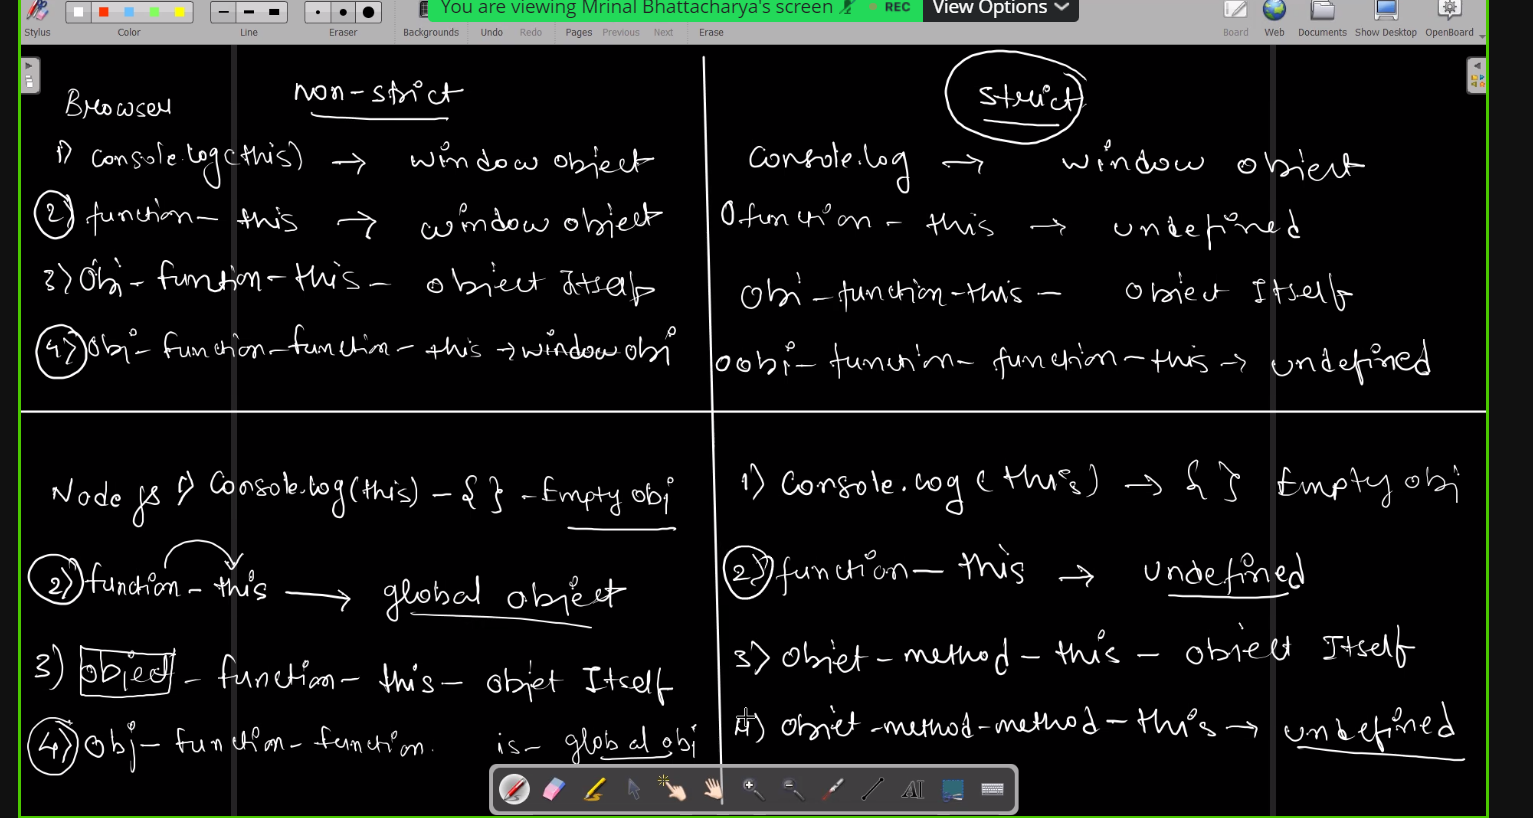 You are viewing Mrinal Bhattacharya's screen REC View Options
Stylus Color Line Eraser Backgrounds Undo Redo Pages Previous Next Erase Board Web Documents Show Desktop OpenBoard
Browser non-strict
1) console.log(this) → window object
2) function - this → window object
3) Obj - function - this - object Itself
4) Obj - function - function - this → window obj
strict
Console.log → window object
function - this → undefined
Obj - function - this - object Itself
obj - function - function - this → undefined
Node js 1) Console.log(this) - { } - Empty obj
2) function - this → global object
3) object - function - this - objet Itself
4) Obj - function - function. is - global obj
1) Console.log (this) → { } Empty obj
2) function - this → undefined
3) objet - method - this - object Itself
4) objet - method - method - this → undefined